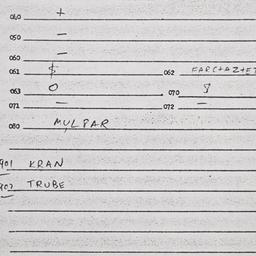 040 +
050 —
060 —
061 $ 062
063 0 070 8
071 — 072 —
080 MULPAR
901 KRAN
902 TRUBE